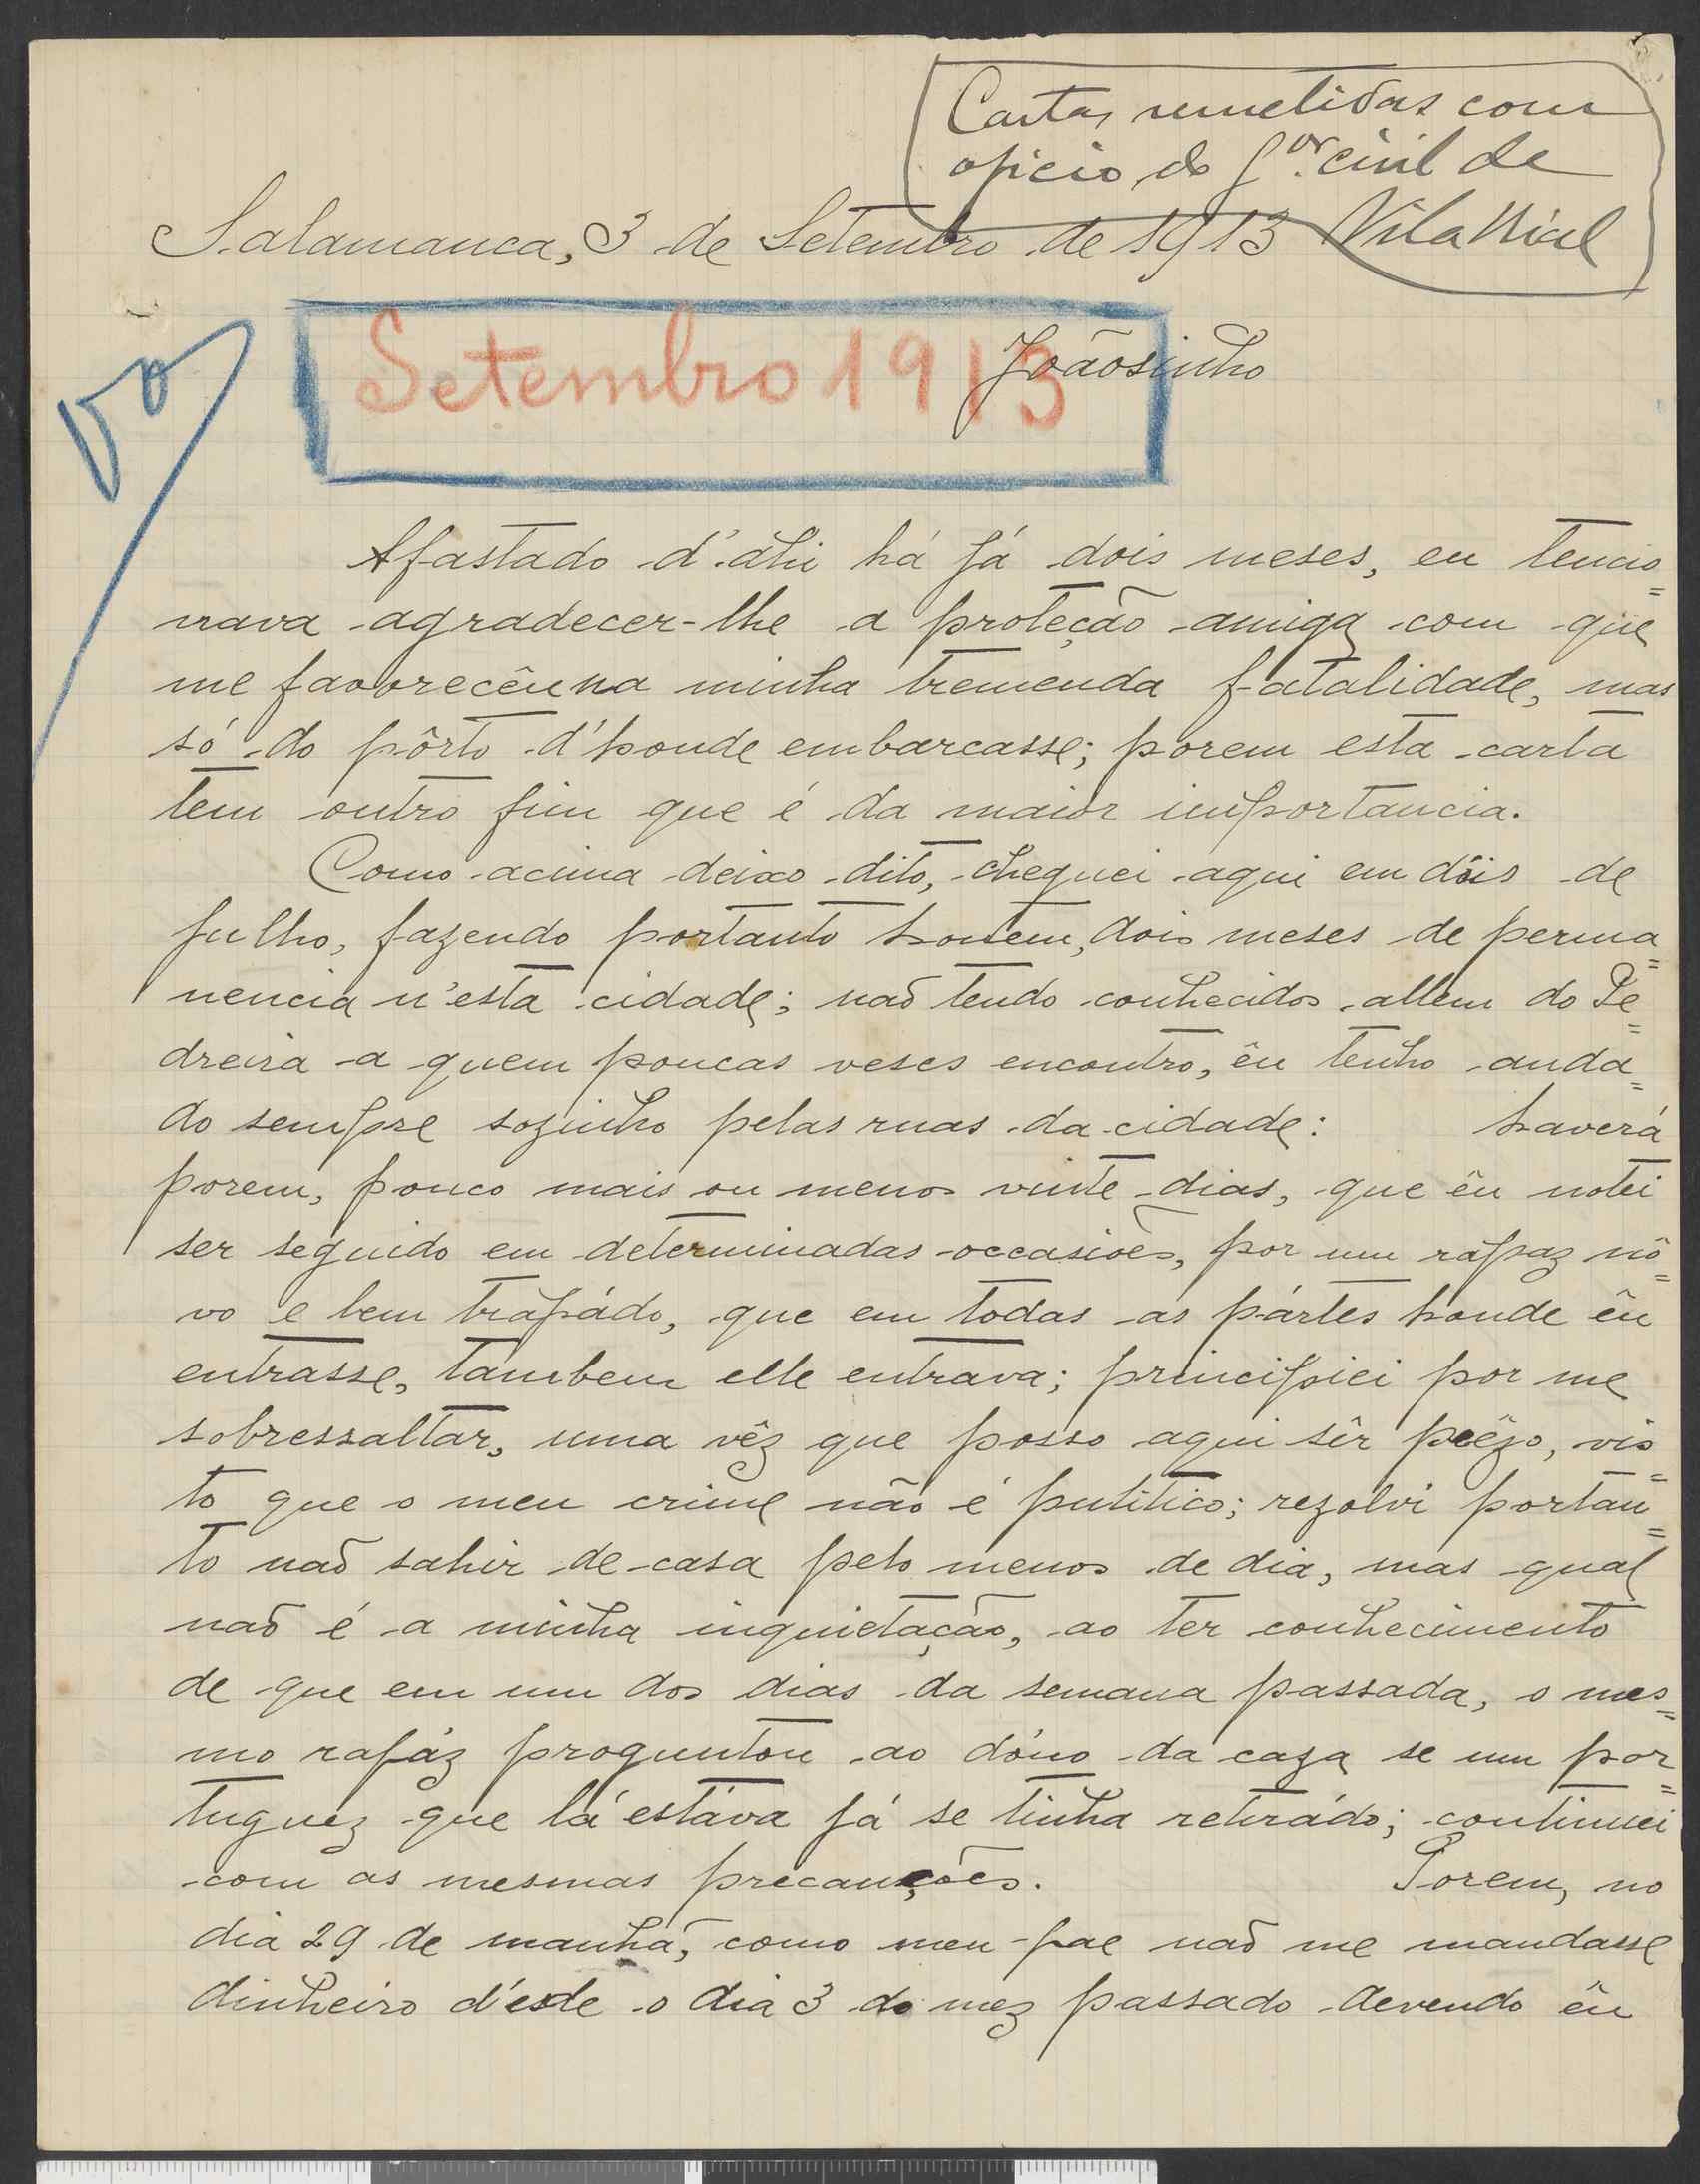 Cartas remetidas com
oficio do G.or civil de
Vila Rial
Salamanca, 3 de Setembro de 1913
Setembro 1913
Joãosinho
Afastado d'ahi há já dois meses, eu tencio=
nava agradecer-lhe a proteção amiga com que
me favorecêu na minha tremenda fatalidade, mas
só do pôrto d'honde embarcasse; porem esta carta
tem outro fim que é da maior importancia.
Como acima deixo dito, cheguei aqui em dois de
julho, fazendo portanto hontem, dois meses de perma=
nencia n'esta cidade; naõ tendo conhecidos allem do Pe=
dreira a quem poucas veses encontro, êu tenho anda=
do sempre sozinho pelas ruas da cidade: haverá
porem, pouco mais ou menos vinte dias, que êu notei
ser seguido em determinadas occasiões, por um rapaz nô=
vo e bem trajádo, que em todas as pártes honde êu
entrasse, tambem elle entrava; principiei por me
sobressaltar, uma vêz que posso aqui sêr prêzo, vis=
to que o meu crime não é pulitico; rezolvi portan=
to naõ sahir de casa pelo menos de dia, mas qual
naõ é a minha inquietação, ao ter conhecimento
de que em um dos dias da semana passada, o mes=
mo rapáz proguntou ao dóno da caza se um por=
tuguez que lá estáva já se tinha retirádo; continuei
com as mesmas precauções. Porem, no
dia 29 de manhã, como meu pae naõ me mandasse
dinheiro d'esde o dia 3 do mez passado devendo êu